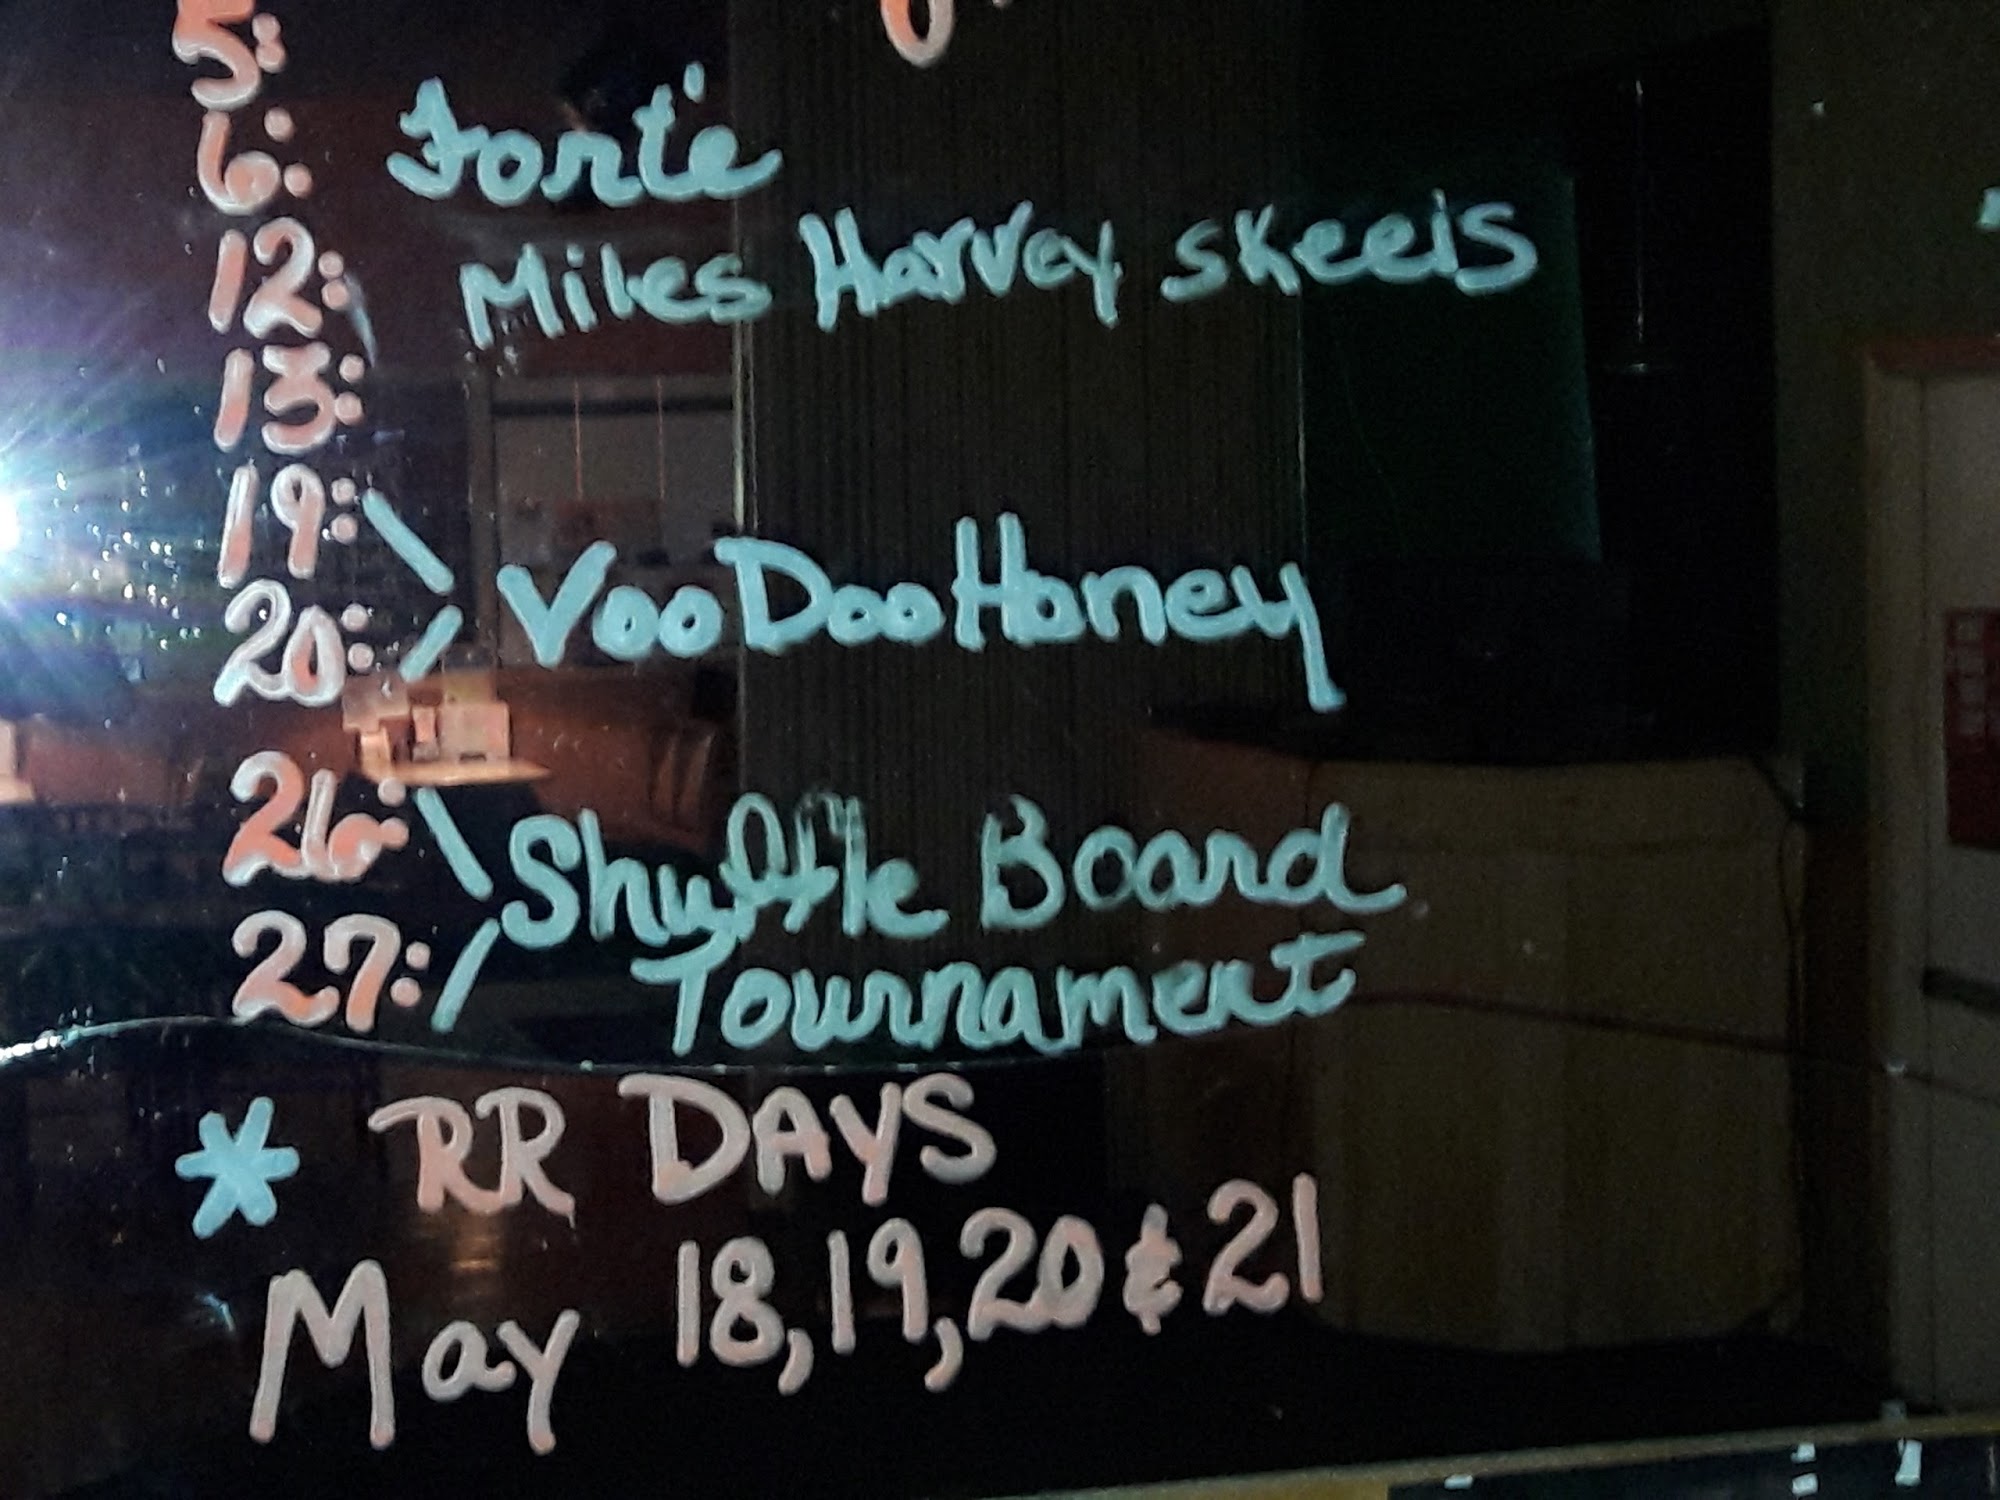 5:
6: Forte'
12: Miles Harvey Skeels
13:
19:
20: VooDoo Honey
26:
27: Shuffle Board
Tournament
* RR DAYS
May 18, 19, 20 & 21